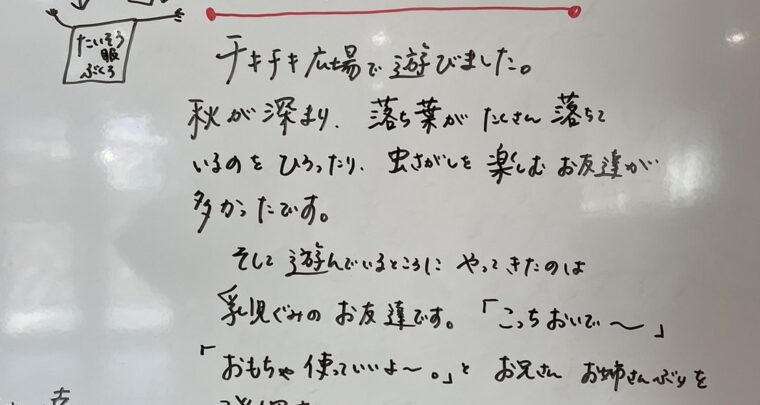 たいそう
服
ぶくろ
チキチキ広場で遊びました。
秋が深まり、落ち葉がたくさん落ちて
いるのをひろったり、虫さがしを楽しむお友達が
多かったです。
そして遊んでいるところにやってきたのは
乳児ぐみのお友達です。「こっちおいで〜」
「おもちゃ使っていいよ〜。」とお兄さんお姉さんぶりを